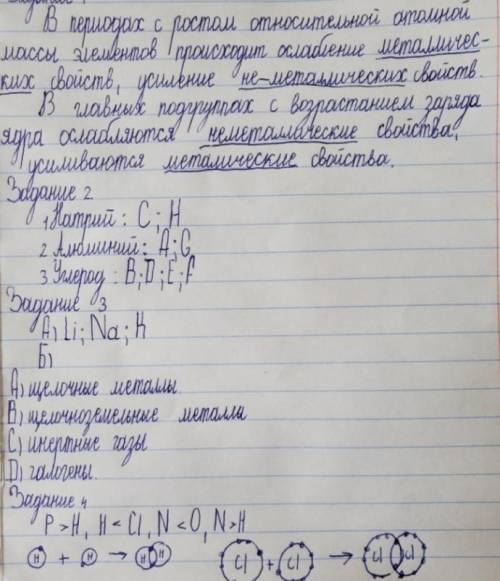 В периодах с ростом относительной атомной
массы элементов происходит ослабление металличес-
ких свойств, усиление не-металлических свойств.
В главных подгруппах с возрастанием заряда
ядра ослабляются неметаллические свойства,
усиливаются металические свойства.
Задание 2
1 Натрий: C; H
2 Алюминий: A; G
3 Углерод: B; D; E; F
Задание 3
A) Li; Na; K
Б)
A) щелочные металлы
B) щелочноземельные металлы
C) инертные газы
D) галогены.
Задание 4
P > H, H < Cl, N < O, N > H
H + H → H H Cl + Cl → Cl Cl